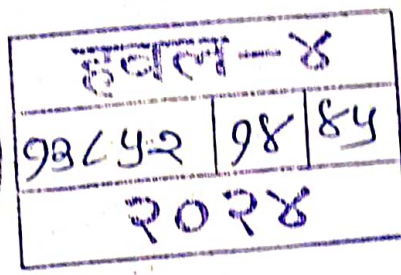 हवल-४
१३८५२ १४ ४५
२०२४